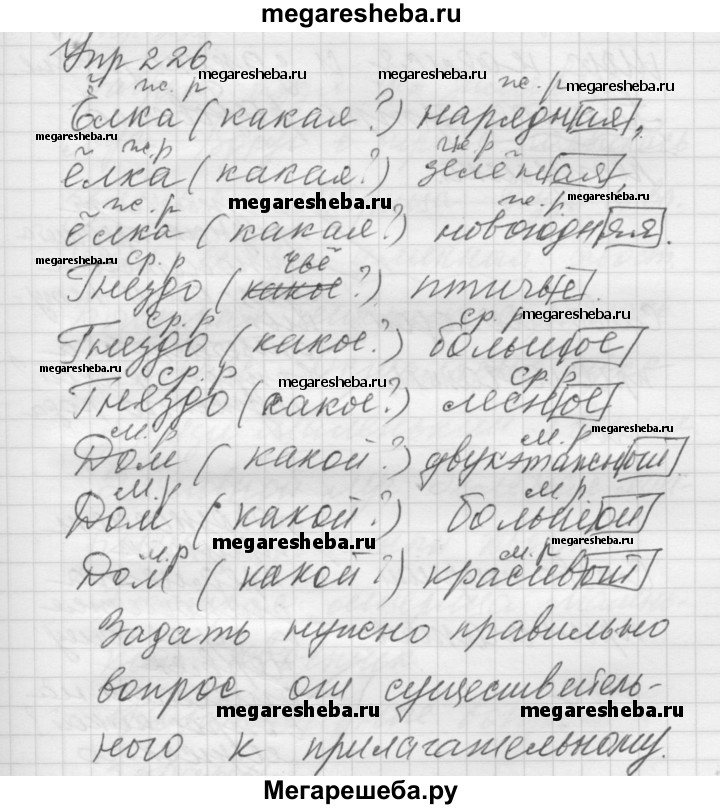 megaresheba.ru
Упр 226
megaresheba.ru megaresheba.ru
ж. р ж. р
Ёлка (какая?) нарядная,
megaresheba.ru
ж. р ж. р
ёлка (какая?) зелёная,
megaresheba.ru megaresheba.ru
ж. р ж. р
ёлка (какая?) новогодняя.
megaresheba.ru
ср. р чьё
Гнездо (какое?) птичье.
megaresheba.ru megaresheba.ru
ср. р ср. р
Гнездо (какое?) большое
megaresheba.ru megaresheba.ru
ср. р ср. р
Гнездо (какое?) лесное
megaresheba.ru
м. р м. р
Дом (какой?) двухэтажный.
megaresheba.ru megaresheba.ru
м. р м. р
Дом (какой?) большой
megaresheba.ru megaresheba.ru
м. р м. р
Дом (какой?) красивый
Задать нужно правильно
вопрос от существитель-
megaresheba.ru megaresheba.ru
ного к прилагательному.
Мегарешеба.ру